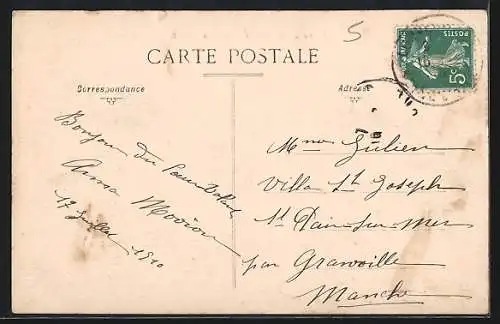 5
CARTE POSTALE
Correspondance
Adresse
POSTES
5c
Bonjour du
Anna
17 Juillet 1910
Mme Julien
Villa St Joseph
St Pair-sur-Mer
par Granville
Manche